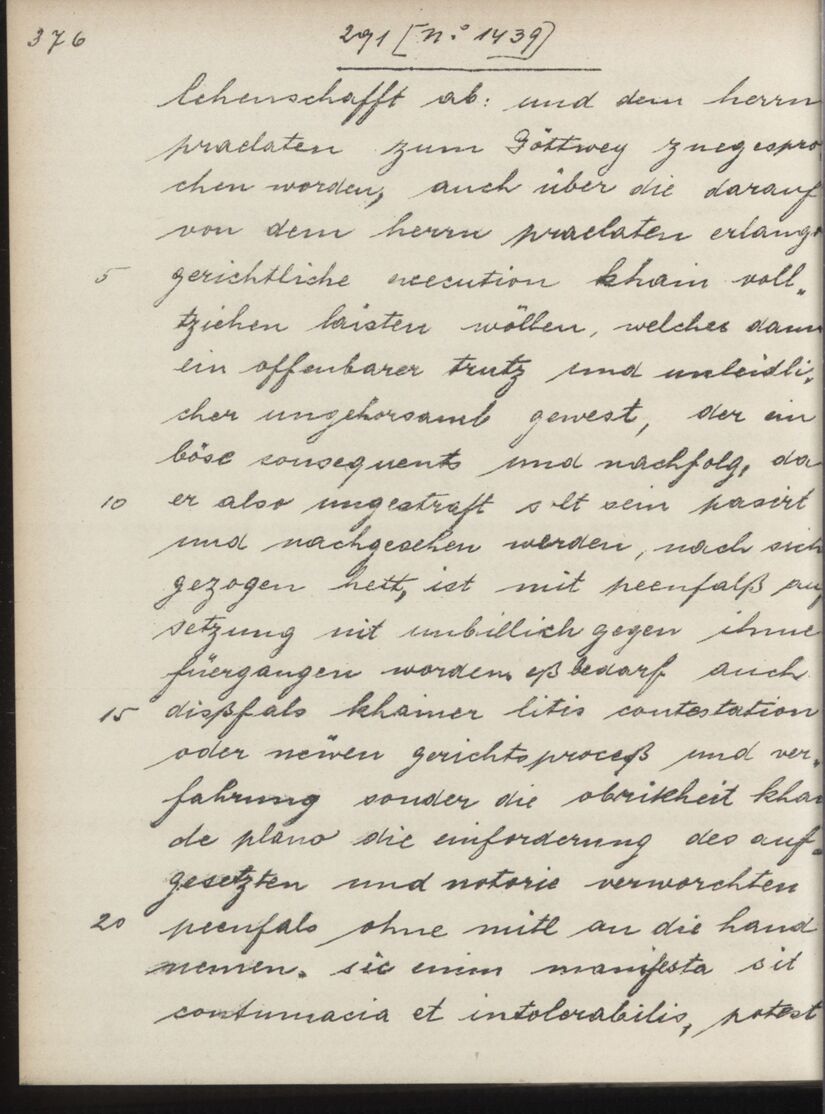 376 291 [N.º 1439]
lehenschafft ab: und dem herrn
praelaten zum Göttwey zuegespro
chen worden, auch über die darauf
von dem herrn praelaten erlangt
5 gerichtliche execution khain voll„
tziehen laisten wöllen, welches dann
ein offenbarer trutz und unleidli„
cher ungehorsamb gewest, der ein
böse consequents und nachfolg, da
10 er also ungestraft solt sein pasirt
und nachgesehen werden, nach sich
gezogen hett, ist mit peenfalß auf
setzung nit unbillich gegen ihme
füergangen worden. eß bedarf auch
15 dißfals khainer litis contestation
oder neuen gerichtsproceß und ver„
fahrung sonder die obrikheit khan
de plano die einforderung des auf„
gesetzten und notorie verworchten
20 peenfals ohne mitl an die hand
nemen. sic enim manifesta sit
contumacia et intolerabilis, potest